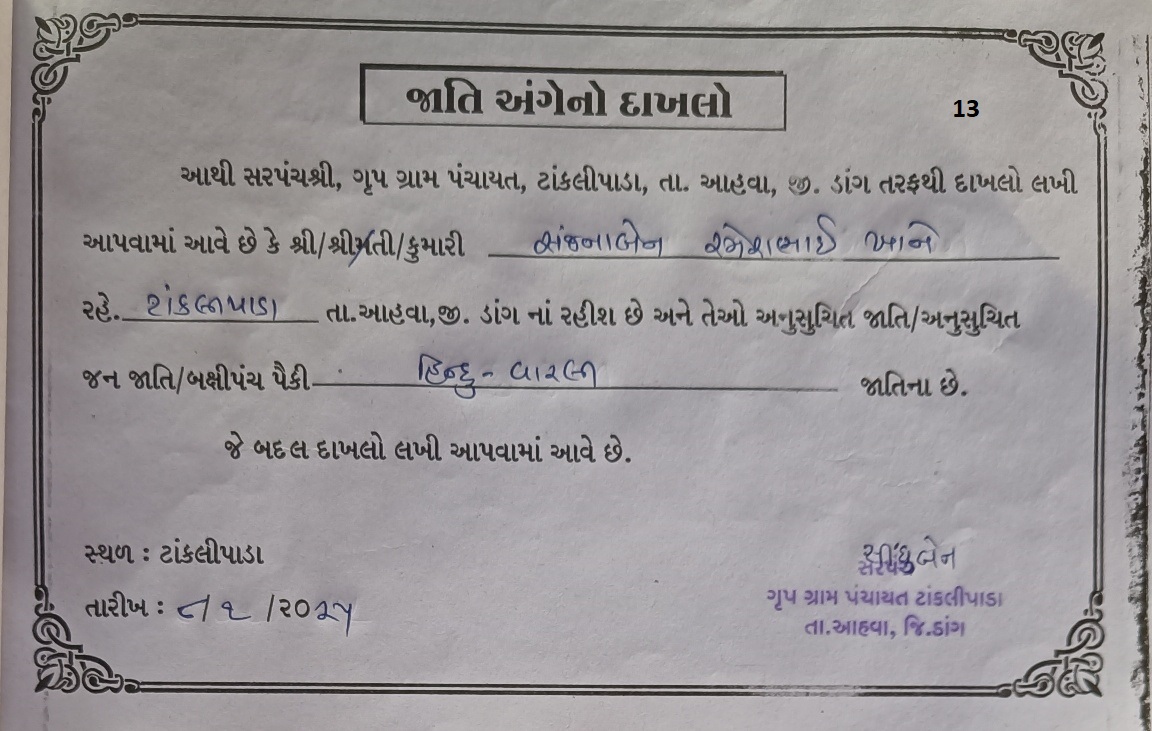 જાતિ અંગેનો દાખલો
13
આથી સરપંચશ્રી, ગૃપ ગ્રામ પંચાયત, ટાંકલીપાડા, તા. આહવા, જી. ડાંગ તરફથી દાખલો લખી
આપવામાં આવે છે કે શ્રી/શ્રીમતી/કુમારી સંજનાબેન રમેશભાઈ ખાને
રહે. ટાંકલીપાડા તા.આહવા,જી. ડાંગ નાં રહીશ છે અને તેઓ અનુસુચિત જાતિ/અનુસુચિત
જન જાતિ/બક્ષીપંચ પૈકી હિન્દુ - વારલી જાતિના છે.
જે બદલ દાખલો લખી આપવામાં આવે છે.
સ્થળ : ટાંકલીપાડા
તારીખ : /૨૦૨૫
સરપંચ
ગૃપ ગ્રામ પંચાયત ટાંકલીપાડા
તા.આહવા, જિ.ડાંગ